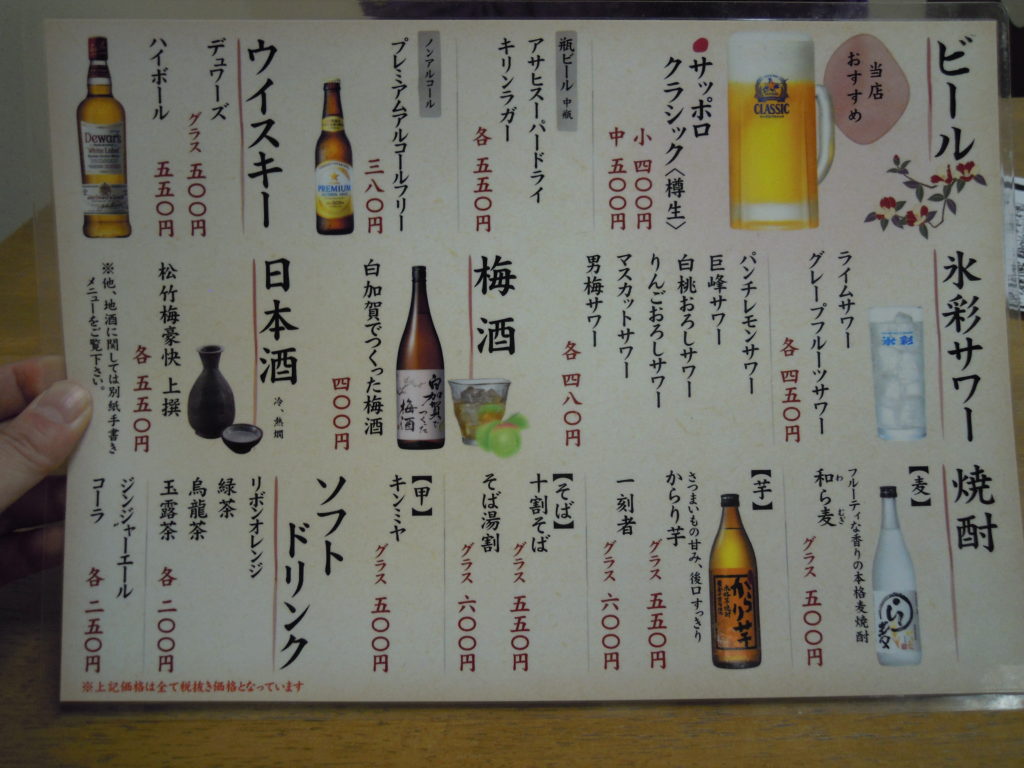 ビール
当店
おすすめ
CLASSIC
サッポロ
クラシック〈樽生〉
小 四〇〇円
中 五〇〇円
瓶ビール 中瓶
アサヒスーパードライ
キリンラガー
各 五五〇円
ノンアルコール
プレミアムアルコールフリー
三八〇円
PREMIUM
ウイスキー
デュワーズ
グラス 五〇〇円
ハイボール
五五〇円
Dewar's
White Label
氷彩サワー
氷彩
ライムサワー
グレープフルーツサワー
各 四五〇円
パンチレモンサワー
巨峰サワー
白桃おろしサワー
りんごおろしサワー
マスカットサワー
男梅サワー
各 四八〇円
梅酒
白加賀で
つくった
梅酒
白加賀でつくった梅酒
四〇〇円
日本酒
冷、熱燗
松竹梅豪快 上撰
各 五五〇円
※他、地酒に関しては別紙手書き
メニューをご覧下さい。
焼酎
【麦】
フルーティな香りの本格麦焼酎
和ら麦
わ むぎ
グラス 五〇〇円
【芋】
からり芋
さつまいもの甘み、後口すっきり
からり芋
グラス 五五〇円
一刻者
グラス 六〇〇円
【そば】
十割そば
グラス 五五〇円
そば湯割
グラス 六〇〇円
【甲】
キンミヤ
グラス 五〇〇円
ソフト
ドリンク
リボンオレンジ
緑茶
烏龍茶
玉露茶
各 二〇〇円
ジンジャーエール
コーラ
各 二五〇円
※上記価格は全て税抜き価格となっています